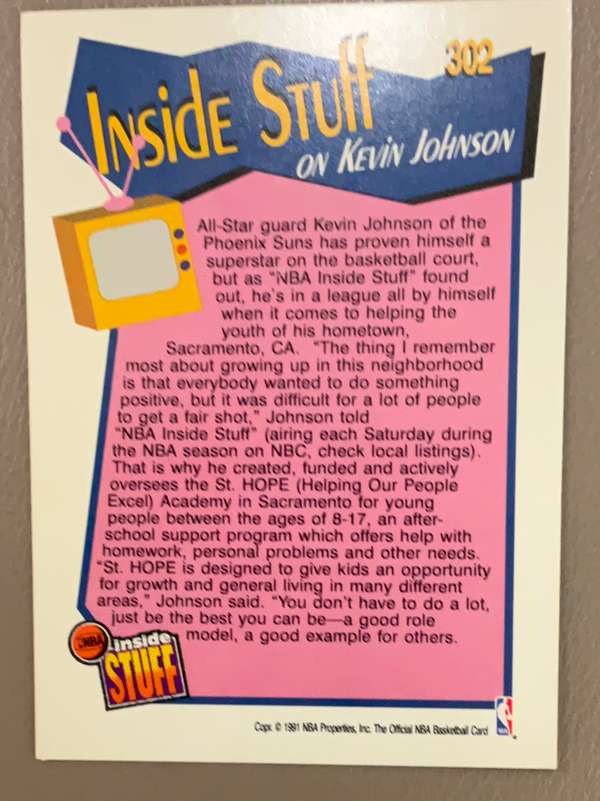 302
INSIDE STUFF
ON KEVIN JOHNSON
All-Star guard Kevin Johnson of the
Phoenix Suns has proven himself a
superstar on the basketball court,
but as "NBA Inside Stuff" found
out, he's in a league all by himself
when it comes to helping the
youth of his hometown,
Sacramento, CA. "The thing I remember
most about growing up in this neighborhood
is that everybody wanted to do something
positive, but it was difficult for a lot of people
to get a fair shot," Johnson told
"NBA Inside Stuff" (airing each Saturday during
the NBA season on NBC, check local listings).
That is why he created, funded and actively
oversees the St. HOPE (Helping Our People
Excel) Academy in Sacramento for young
people between the ages of 8-17, an after-
school support program which offers help with
homework, personal problems and other needs.
"St. HOPE is designed to give kids an opportunity
for growth and general living in many different
areas," Johnson said. "You don't have to do a lot,
just be the best you can be—a good role
model, a good example for others.
NBA inside
STUFF
Copr. © 1991 NBA Properties, Inc. The Official NBA Basketball Card
NBA